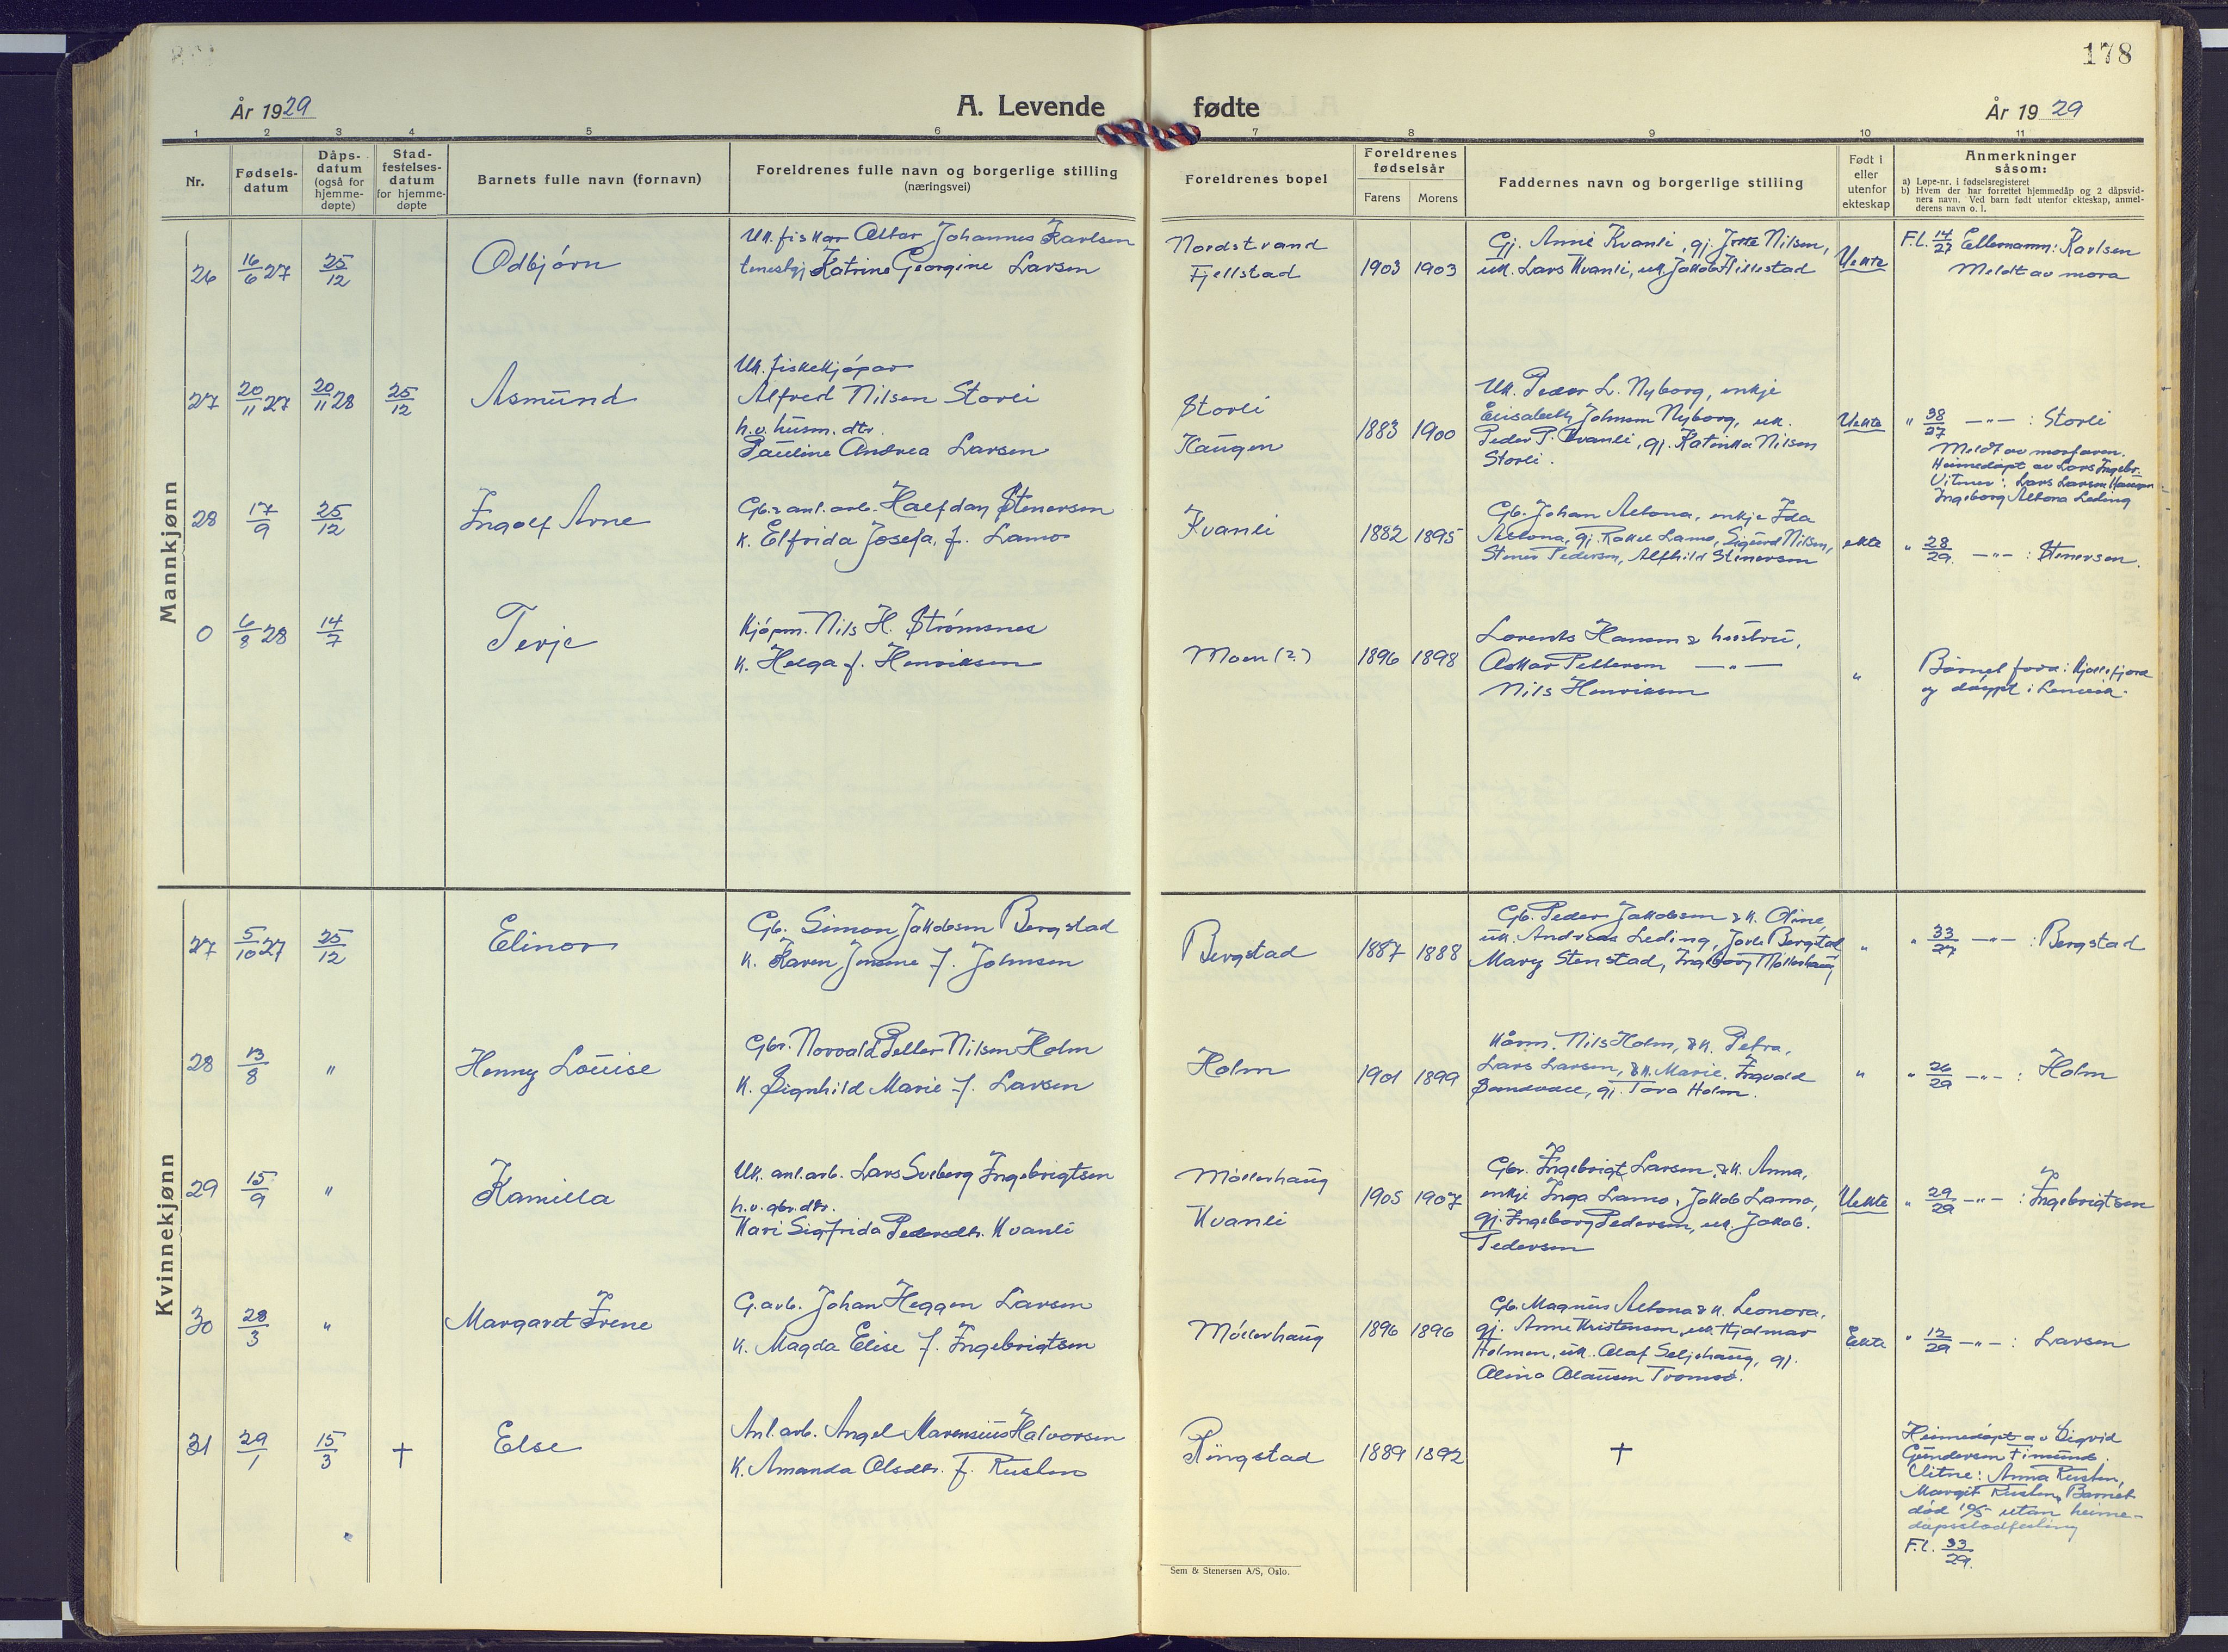 178
År 1929
A. Levende fødte
År 1929
1 2 3 4 5 6 7 8 9 10 11
Nr.
Fødsels-
datum
Dåps-
datum
(også for
hjemme-
døpte)
Stad-
festelses-
datum
for hjemme-
døpte
Barnets fulle navn (fornavn)
Foreldrenes fulle navn og borgerlige stilling
(næringsvei)
Foreldrenes bopel
Foreldrenes
fødselsår
Farens Morens
Faddernes navn og borgerlige stilling
Født i
eller
utenfor
ekteskap
Anmerkninger
såsom:
a) Løpe-nr. i fødselsregisteret
b) Hvem der har forrettet hjemmedåp og 2 dåpsvid-
ners navn. Ved barn født utenfor ekteskap, anmel-
derens navn o. l.
Mannkjønn
26 16/6 27 25/12 Odbjørn
Uk. fiskar Johannes Karlsen
Katrine Georgine Larsen
Nordstrand
Fjellstad
1903 1903
Gj. Anne Kvanli, gj. Nilsen,
uk. Lars Kvanli, uk. Jakob Hillestad
Uekte
F.l. 14/27 Etternamn: Karlsen
Meldt av mora
27 20/11 27 20/11 28 25/12 Asmund
Uk. fiskekjøpar
Alfred Nilsen Storli
h.v. husm. dtr.
Pauline Andrea Larsen
Storli
Haugen
1883 1900
Uk. Peder L. Nyborg, enkje
Elisabeth Johnsen Nyborg, uk.
Peder P. Kvanli, gj. Katinka Nilsen
Storli.
Uekte
" 38/27 —"— : Storli
Meldt av morfaren.
Heimedøpt av Lars Ingebr.
Vitner: Lars Larsen Haugen
Ingeborg Altona Leding
28 17/9 25/12 Ingolf Arne
Gb. & anl. arb. Halfdan Stenersen
K. Elfrida Josefa, f. Lamo
Kvanli
1882 1895
Gb. Johan Altona, enkje Ida
Altona, gj. Rakel Lamo, Sigurd Nilsen,
Stener Pedersen, Alfhild Stenersen
ekte
" 28/29 —"— : Stenersen.
0 6/8 28 14/7 Terje
Kjøpm. Nils H. Strømsnes
K. Helga f. Henriksen
Moen (?)
1896 1898
Lorents Hansen & hustru,
Oskar Pettersen —"—
Nils Henriksen
"
Barnet født i Kjøllefjord
og døypt i Lenvik.
Kvinnekjønn
27 5/10 27 25/12 Elinor
Gb. Simon Jakobsen Bergstad
K. Karen Jensine f. Johnsen
Bergstad
1887 1888
Gb. Peder Jakobsen & K. Oline,
uk. Andreas Leding, Bergstad
Mary Stenstad, Ingeborg Møllerhaug
"
" 33/27 —"— : Bergstad
28 13/8 " Henny Louise
Gbr. Norvald Petter Nilsen Holm
K. Signhild Marie f. Larsen
Holm
1901 1899
Kårm. Nils Holm, & K. Petra,
Lars Larsen, & K. Marie. Ingvald
Sandvoll, gj. Tora Holm.
"
" 26/29 —"— : Holm
29 15/9 " Kamilla
Uk. anl. arb. Lars Solberg Ingebrigtsen
h.v. gbr. dtr.
Kari Sigfrida Pedersdtr. Kvanli
Møllerhaug
Kvanli
1905 1907
Gbr. Ingebrigt Larsen, & K. Anna,
enkje Inga Lamo, Jakob Lamo,
gj. Ingeborg Pedersen, uk. Jakob.
Pedersen
Uekte
" 29/29 —"— : Ingebrigtsen
30 28/3 " Margaret Irene
G. arb. Johan Heggen Larsen
K. Magda Elise f. Ingebrigtsen
Møllerhaug
1896 1896
Gb. Magnus Altona & K. Leonora,
gj. Anne Kristensen, uk. Hjalmar
Holmen, uk. Olaf Seljehaug, gj.
Alina Olausen Tromsø.
Ekte
" 12/29 —"— : Larsen
31 29/1 15/3 † Else
Anl. arb. Angel Marensius Halvorsen
K. Amanda Olsdtr. f. Rusten
Ringstad
1889 1892
†
Heimedøpt av Sigrid
Gundersen Finnund.
Vitne: Anna Rusten,
Margit Rusten, Barnet
død 10/5 utan heime-
dåpsstadfesting
F.l. 33/29.
Sem & Stenersen A/S, Oslo.